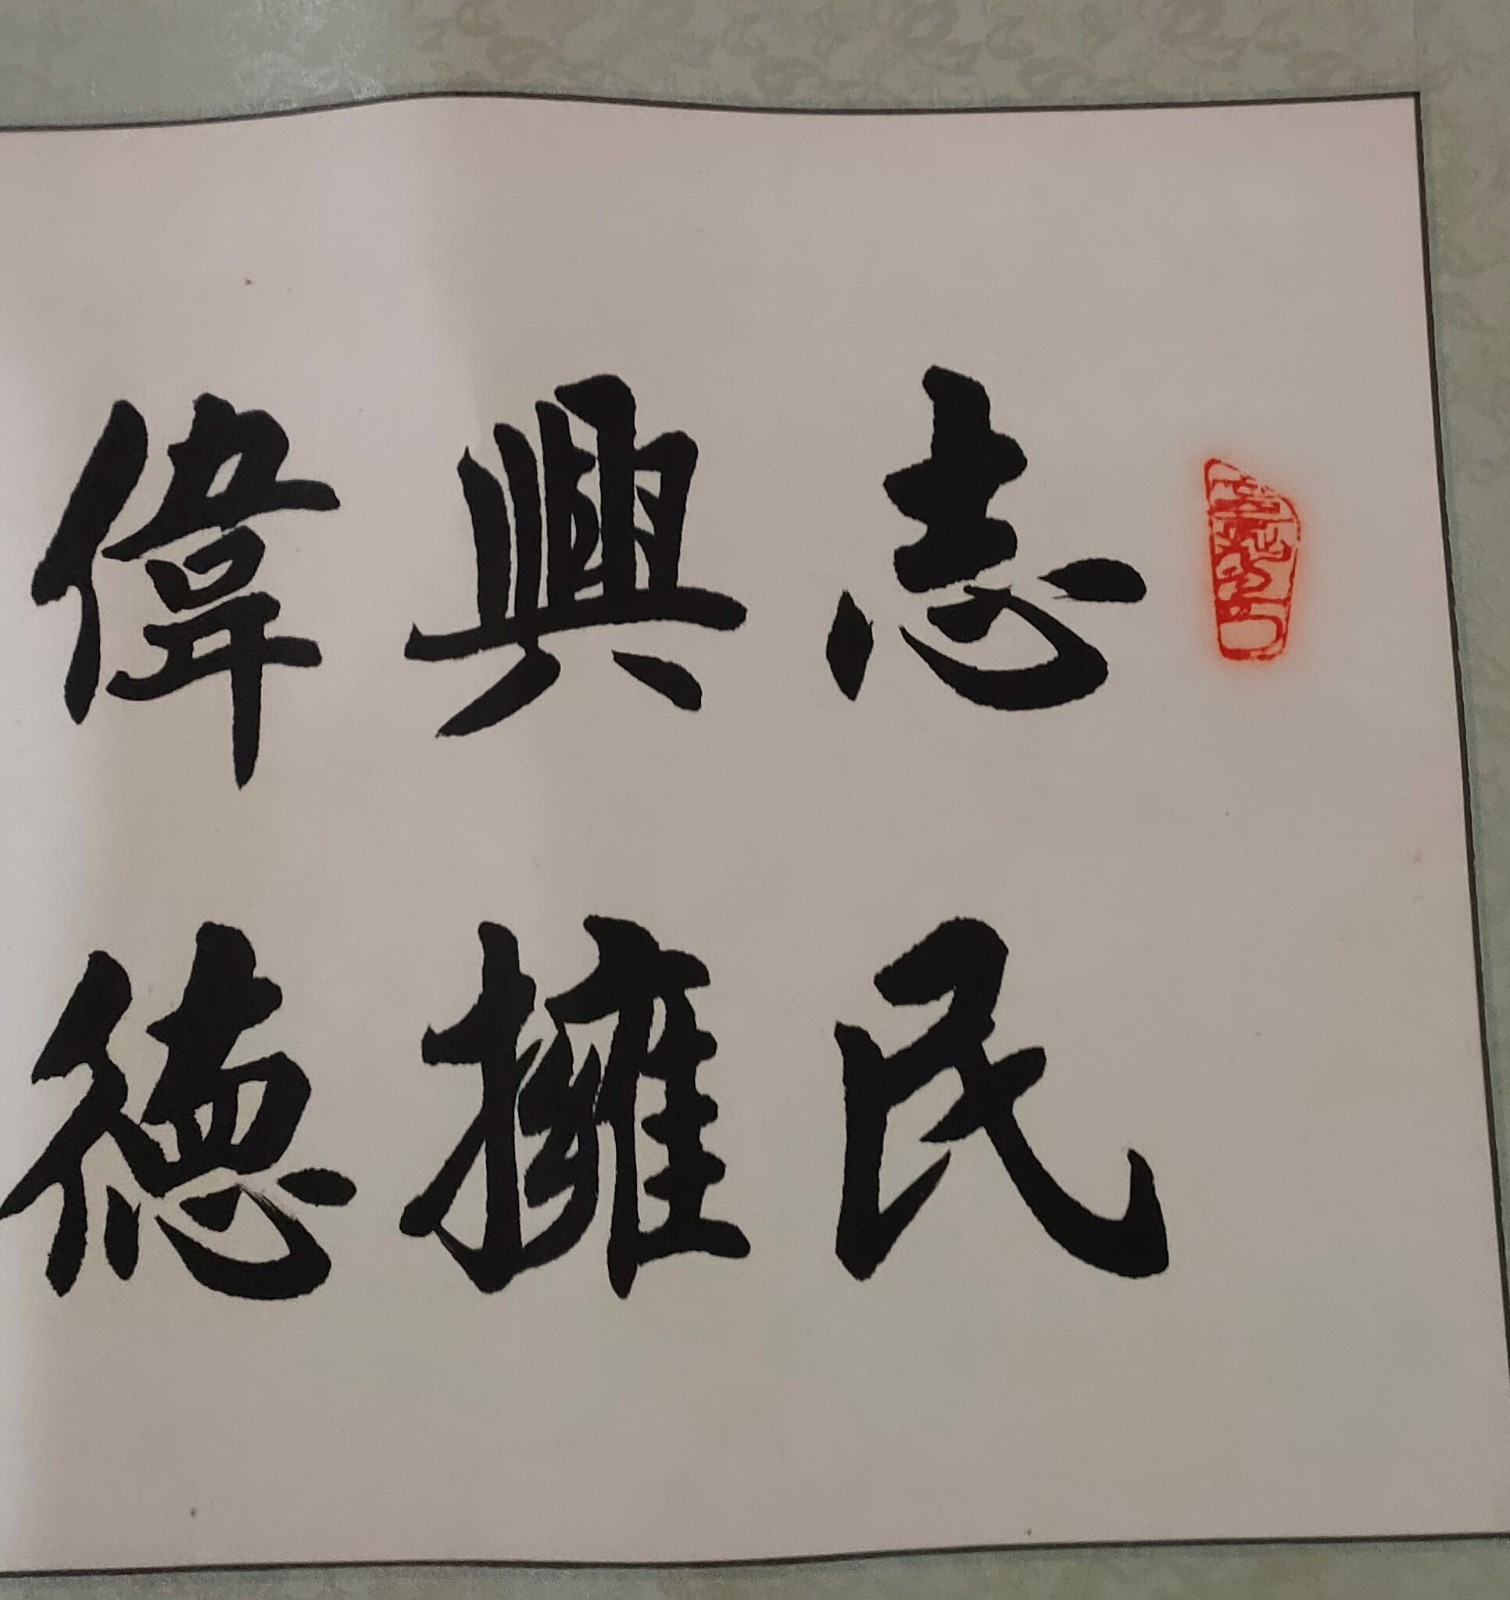 志民
興擁
偉德